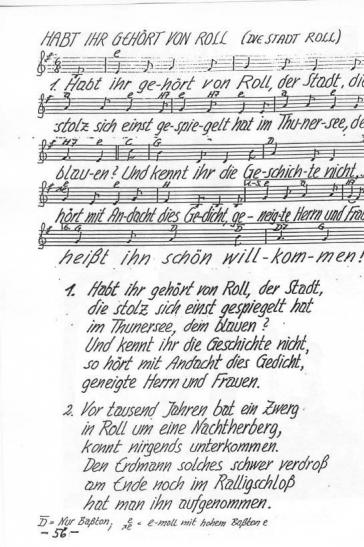 HABT IHR GEHÖRT VON ROLL (DIE STADT ROLL)
1. Habt ihr ge-hört von Roll, der Stadt, die
stolz sich einst ge-spie-gelt hat im Thu-ner-see, de
blau-en? Und kennt ihr die Ge-schich-te nicht
hört mit An-dacht dies Ge-dicht, ge-neig-te Herrn und Frau
heißt ihn schön will-kom-men!
1. Habt ihr gehört von Roll, der Stadt,
die stolz sich einst gespiegelt hat
im Thunersee, dem blauen?
Und kennt ihr die Geschichte nicht,
so hört mit Andacht dies Gedicht,
geneigte Herrn und Frauen.
2. Vor tausend Jahren bat ein Zwerg
in Roll um eine Nachtherberg,
konnt nirgends unterkommen.
Den Erdmann solches schwer verdroß
am Ende noch im Ralligschloß
hat man ihn aufgenommen.
D = Nur Baßton, e = e-moll mit hohem Baßton e
- 56 -